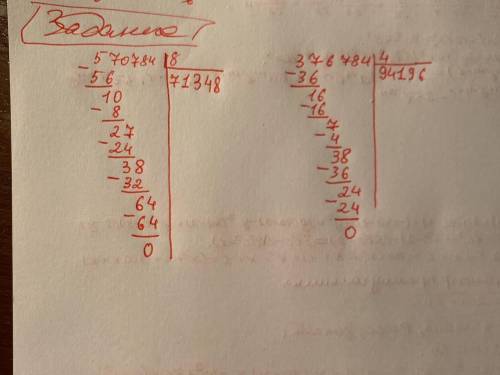 Задание
570784 8
- 56 71348
10
- 8
27
- 24
38
- 32
64
- 64
0
376784 4
- 36 94196
16
- 16
7
- 4
38
- 36
24
- 24
0